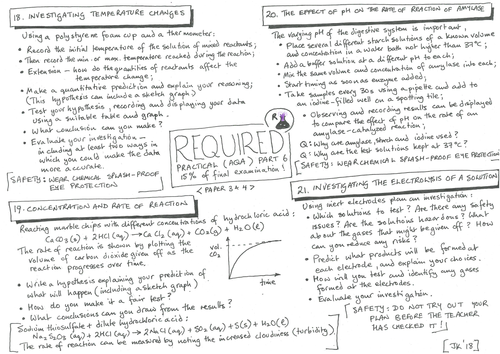 18. INVESTIGATING TEMPERATURE CHANGES
Using a polystyrene foam cup and a thermometer:
• Record the initial temperature of the solution of mixed reactants;
• Then record the min. or max. temperature reached during the reaction;
• Extension – how do the quantities of reactants affect the
temperature change;
• Make a quantitative prediction and explain your reasoning;
(This hypothesis can include a sketch graph)
• Test your hypothesis, recording and displaying your data
using a suitable table and graph.
• What conclusion can you make?
• Evaluate your investigation –
including at least two ways in
which you could make the data
more accurate.
[SAFETY: WEAR CHEMICAL SPLASH-PROOF
EYE PROTECTION
19. CONCENTRATION AND RATE OF REACTION
Reacting marble chips with different concentrations of hydrochloric acid:
CaCO3(s) + 2HCl(aq) → CaCl2(aq) + CO2(g) + H2O(l)
The rate of reaction is shown by plotting the
volume of carbon dioxide given off as the
reaction progresses over time.
• Write a hypothesis explaining your prediction of
what will happen (including a sketch graph)
• How do you make it a fair test?
• What conclusions can you draw from the results?
Sodium thiosulfate + dilute hydrochloric acid:
Na2S2O3(aq) + 2HCl(aq) → 2NaCl(aq) + SO2(aq) + S(s) + H2O(l)
The rate of reaction can be measured by noting the increased cloudiness (turbidity)
vol.
CO2
time
REQUIRED
PRACTICAL (AQA) PART 6
15% of final examination!
<PAPER 3+4>
R
20. THE EFFECT OF pH ON THE RATE OF REACTION OF AMYLASE
The varying pH of the digestive system is important,
• Place several different starch solutions of a known volume
and concentration in a water bath not higher than 37°C;
• Add a buffer solution at a different pH to each;
• Mix the same volume and concentration of amylase into each;
• Start timing as soon as enzyme added;
• Take samples every 30s using a pipette and add to
an iodine-filled well on a spotting tile;
• Observing and recording results can be displayed
to compare the effect of pH on the rate of an
amylase-catalysed reaction;
Q: Why are amylase, starch and iodine used?
Q: Why are the test solutions kept at 37°C?
[SAFETY: WEAR CHEMICAL SPLASH-PROOF EYE PROTECTION
21. INVESTIGATING THE ELECTROLYSIS OF A SOLUTION
Using inert electrodes plan an investigation:
• Which solutions to test? Are there any safety
issues? Are the solutions hazardous? What
about the gases that might be given off? How
can you reduce any risks?
• Predict what products will be formed at
each electrode, and explain your choices.
• How will you test and identify any gases
formed at the electrodes.
• Evaluate your investigation.
[SAFETY: DO NOT TRY OUT YOUR
PLAN BEFORE THE TEACHER
HAS CHECKED IT!]
[JK'18]